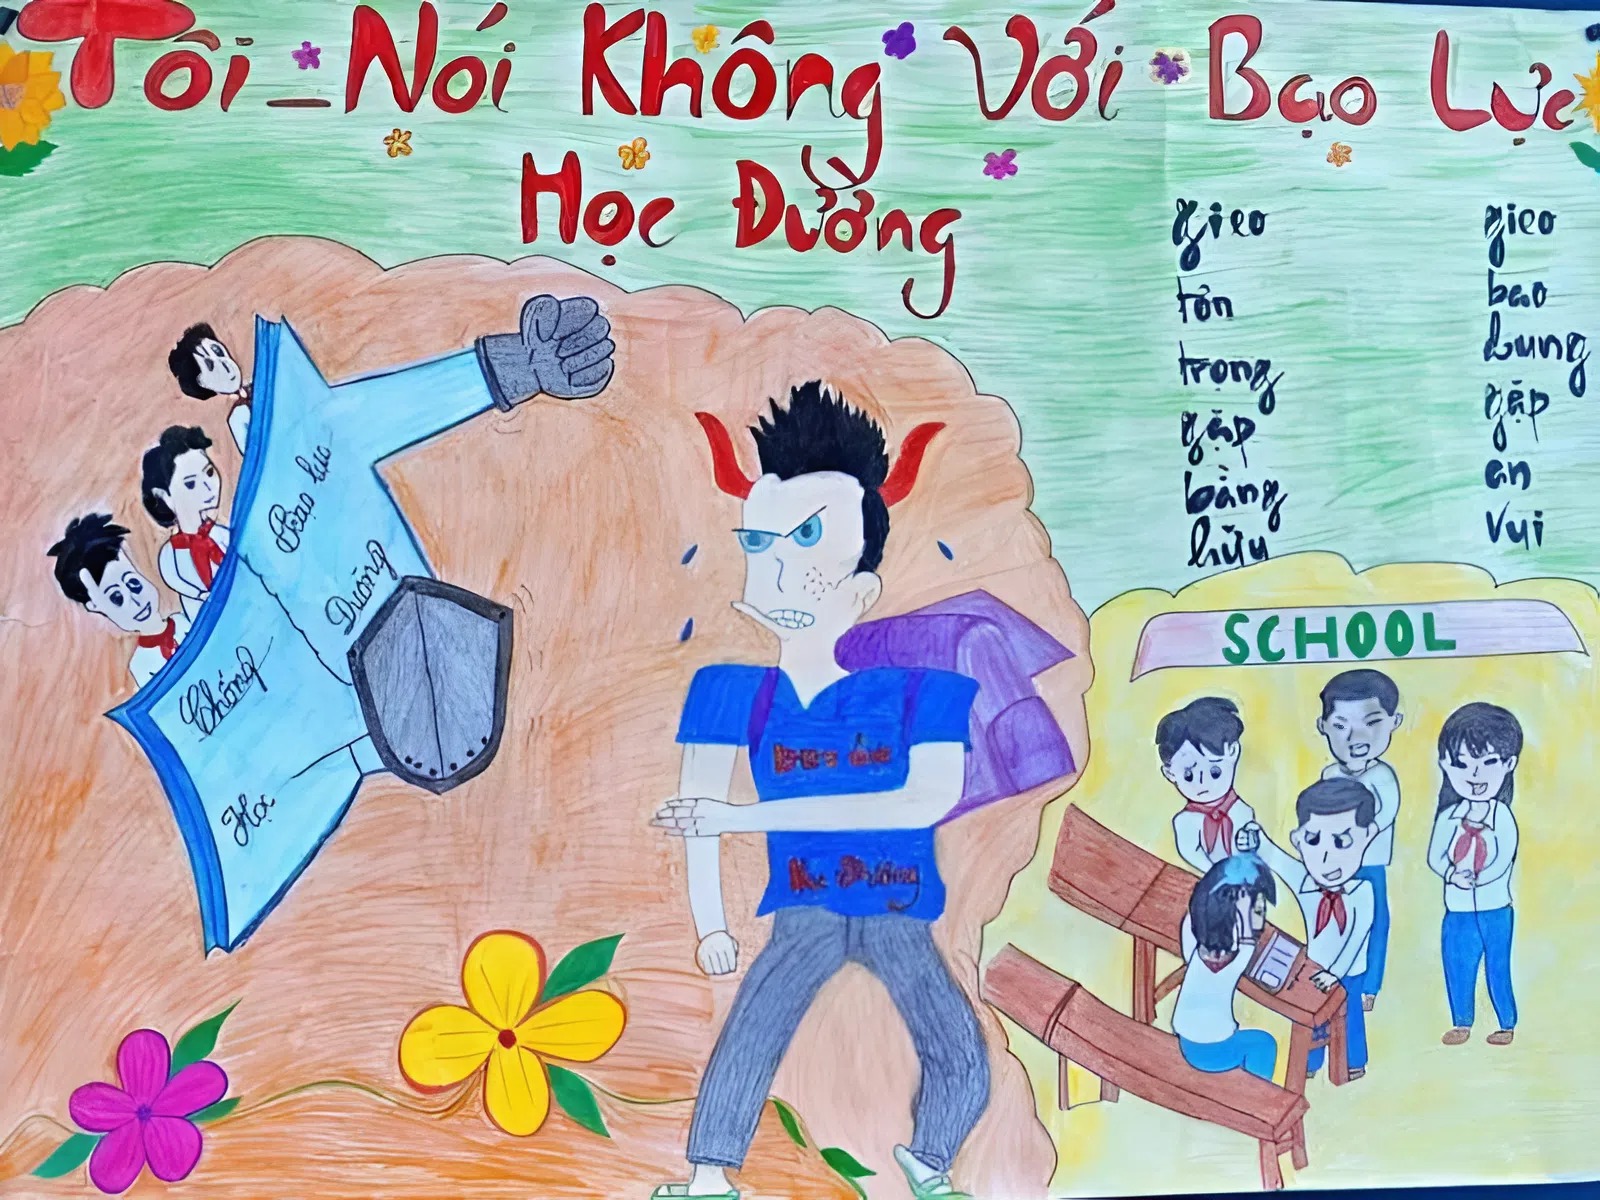 Tôi - Nói Không Với Bạo Lực
Học Đường
gieo
tôn
trọng
gặp
bằng
hữu
gieo
bao
dung
gặp
an
vui
Bạo lực
Đường
Chống
Học
Đường
SCHOOL